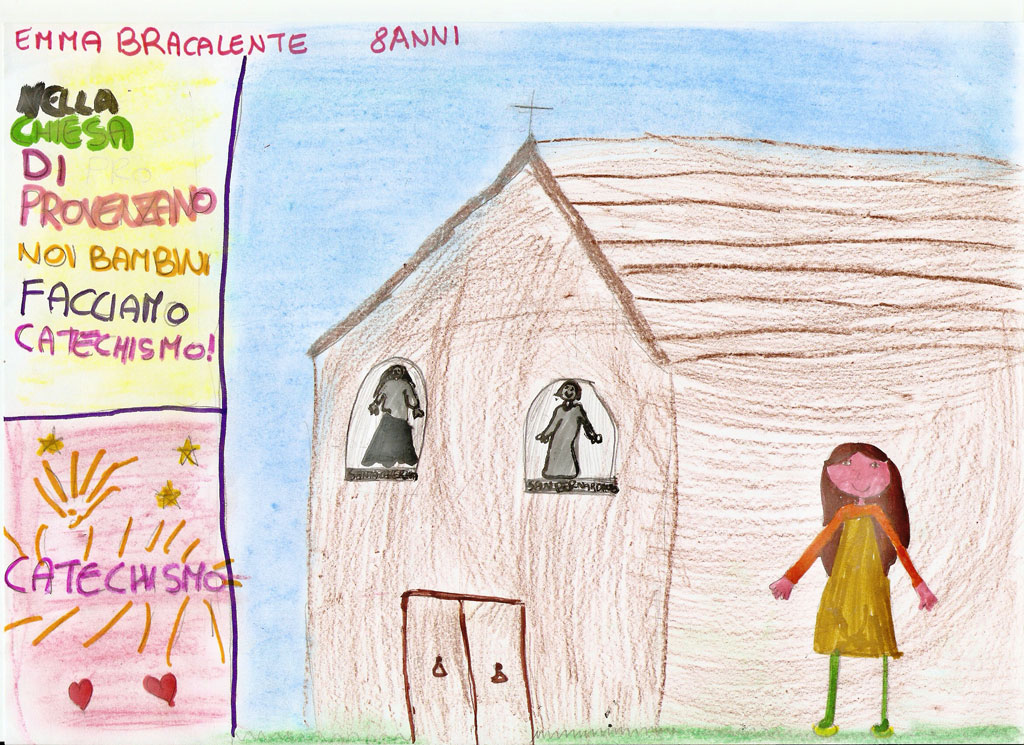 EMMA BRACALENTE 8ANNI
NELLA
CHIESA
DI
PROVENZANO
NOI BAMBINI
FACCIAMO
CATECHISMO!
CATECHISMO